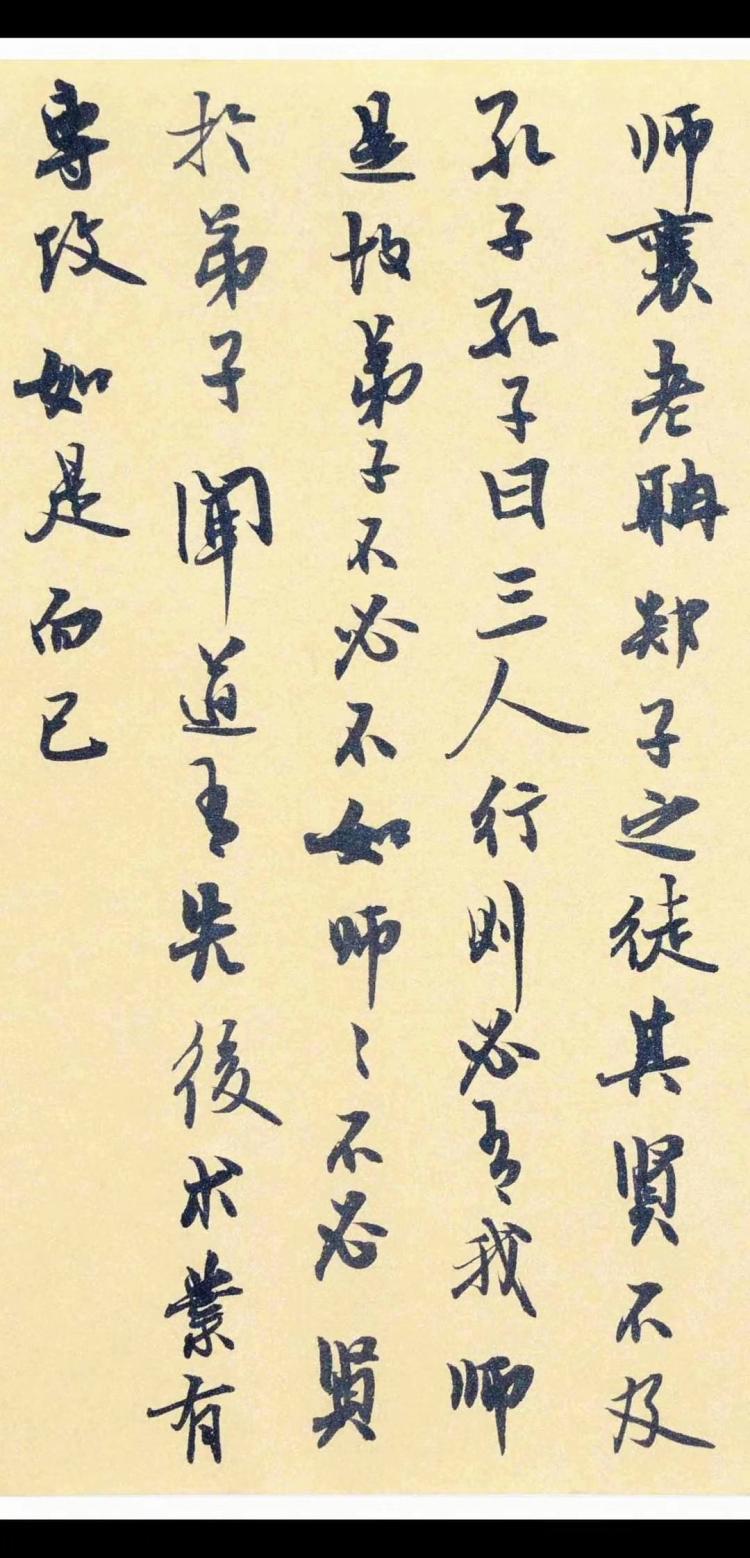 师襄老聃郯子之徒其賢不及
孔子孔子曰三人行則必有我師
是故弟子不必不如師々不必賢
於弟子聞道有先後术業有
專攻如是而已